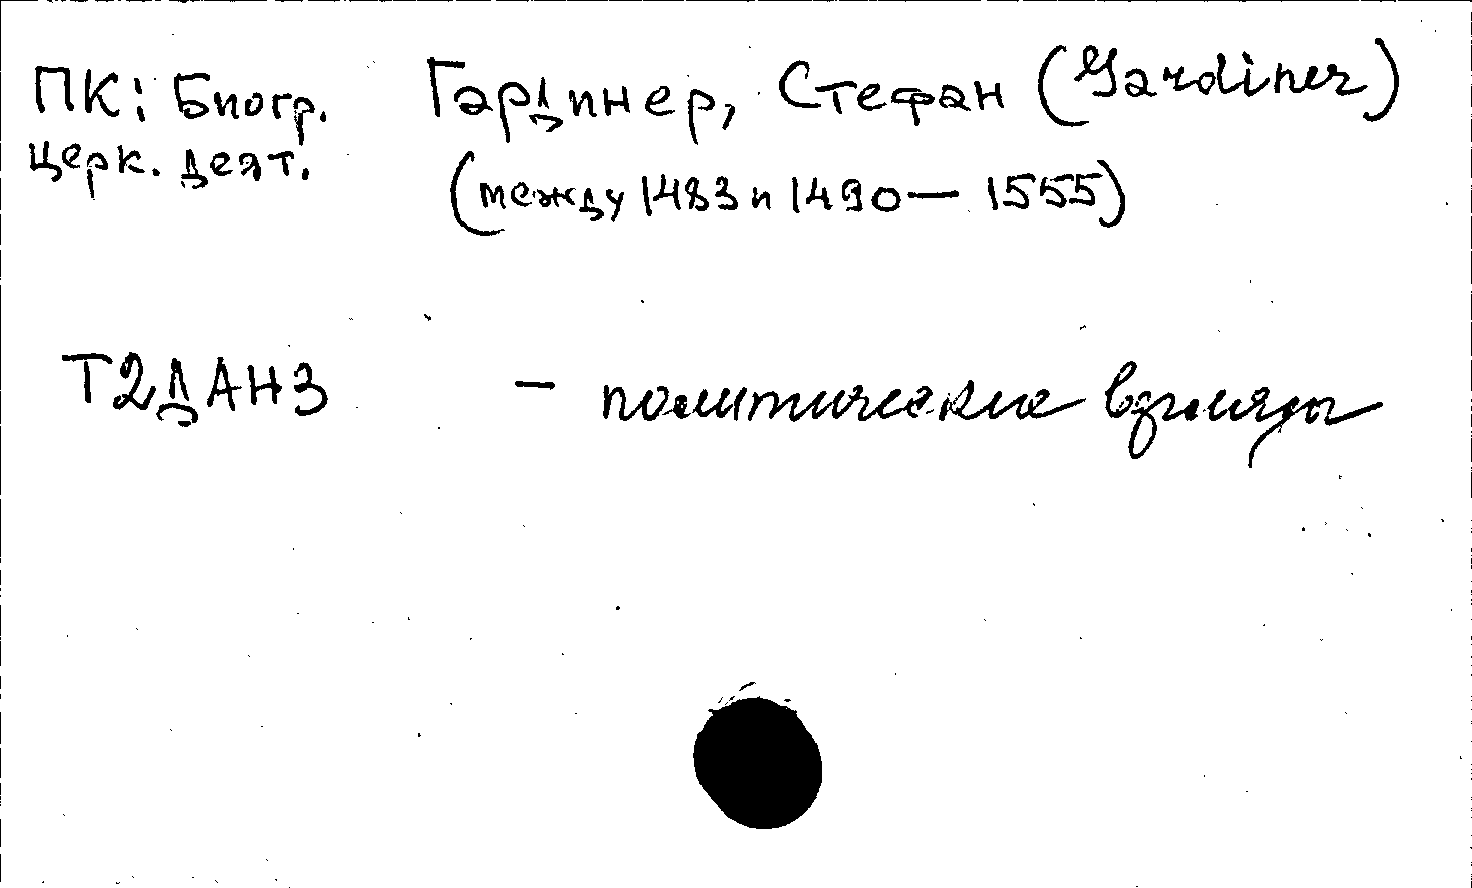 ПК: Биогр. Гардинер, Стефан (Gardiner)
церк. деят. (между 1483 и 1490 — 1555)
Т2ДАНЗ — политические взгляды